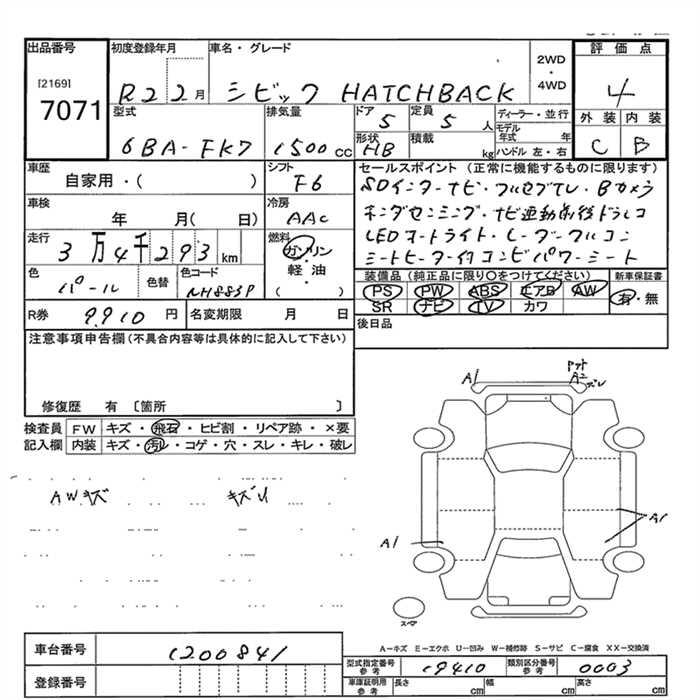 出品番号
初度登録年月
車名・グレード
2WD・4WD
評価点
[2169]
7071
R2 2月
シビック HATCHBACK
4
外装 内装
C B
型式
6BA-FK7
排気量
1500cc
ドア 5
定員 5人
ディーラー・並行
モデル年式 年
形状 HB
積載 kg
ハンドル 左・右
車歴
自家用・( )
シフト
F6
セールスポイント (正常に機能するものに限ります)
SDインターナビ・フルセグTV・Bカメラ
ホンダセンシング・ナビ連動前後ドラレコ
LEDオートライト・レーダークルコン
シートヒーター付コンビパワーシート
車検
年 月( 日)
冷房
AAC
走行
3万4千293km
燃料
ガソリン・軽油
( )
色
パール
色替
色コード
NH883P
装備品 (純正品に限り○をつけてください)
PS PW ABS エアB AW
SR ナビ TV カワ
新車保証書
有・無
R券
9910円
名変期限 月 日
後日品
注意事項申告欄 (不具合内容等は具体的に記入して下さい)
修復歴 有 〔箇所 〕
検査員記入欄
FW キズ・飛石・ヒビ割・リペア跡・×要
内装 キズ・汚れ・コゲ・穴・スレ・キレ・破レ
AWキズ キズU
A1
A2
ズレ
A1
A1
スペア
A-キズ E-エクボ U-凹み W-補修跡 S-サビ C-腐食 XX-交換済
車台番号
1200841
登録番号
型式指定番号 参考
19410
類別区分番号 参考
0003
車庫証明用 参考
長さ cm
幅 cm
高さ cm